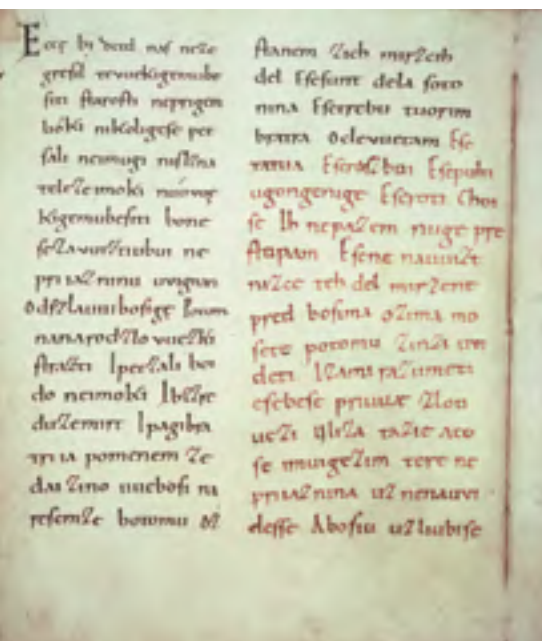 Ecce bi detd naſ neze
greſil tevuekigemube
ſiti ſtaroſti neprigem
lióki nikoligeſe pet
ſali neimugi niſlzna
teleze imoki nuúvuę
kigemubeſiti bone
ſezavuiztiubui ne
priiazninu uvignan
Odſzlauuiboſige Potom
nanarodzlovuezki
ſtrazti Ipetzali boi
do neimoki Ibzzre
duzemirt Ipagibra
triia pomenem ze
dai zino uueboſi na
reſemze botomu oz
ſtanem zich mirzcih
del Eſeſunt dela ſoto
nina Eſetrebu tuorim
bratra Oclevuetam Eſe
tatua Eſerazboi Eſepulti
ugongenige Eſeroti Choi
ſe Ih nepazem nuge pre
ſtopam Eſene nauuizt
nizce teh del mirzene
pred boſima ozima mo
ſete potomu zinzi uvi
deti Izami razumeti
eſebeſe priuuae zlou
uezi uliza tazie aco
ſe imuigezim tere ne
priiaznina uznenauvi
deſſe Aboſiu uzliubiſe